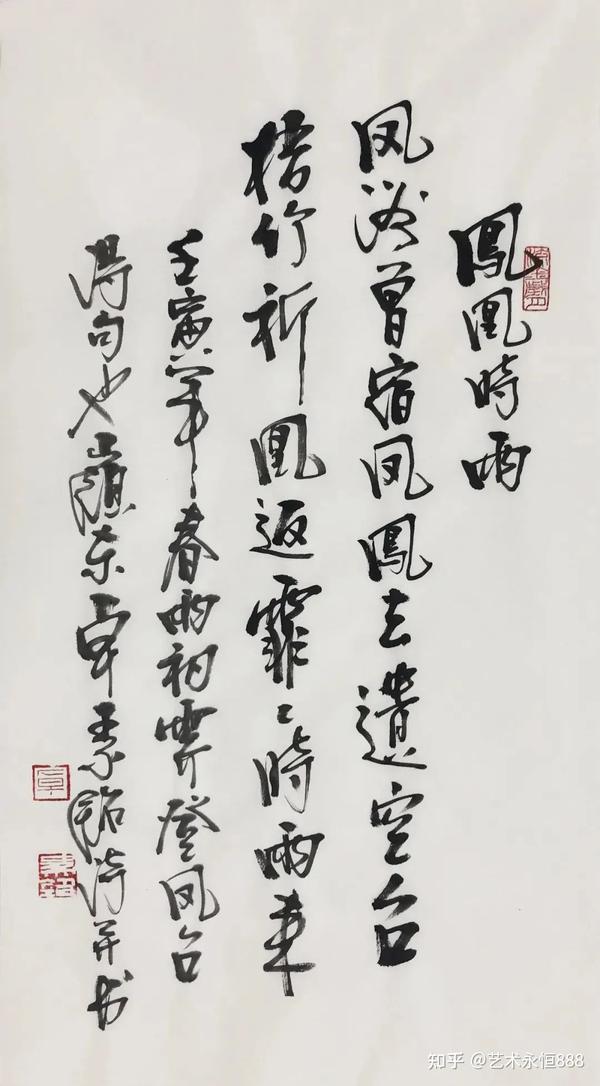 鳳凰時雨
凤曾宿凤鳳去遺空台
梧竹祈凰返霏〻時雨来
壬寅年春雨初霁登凤台
得句也嶺东卓素铭诗并书
卓
知乎 @艺术永恒888